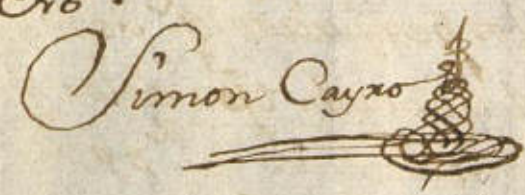 Simon Cayro